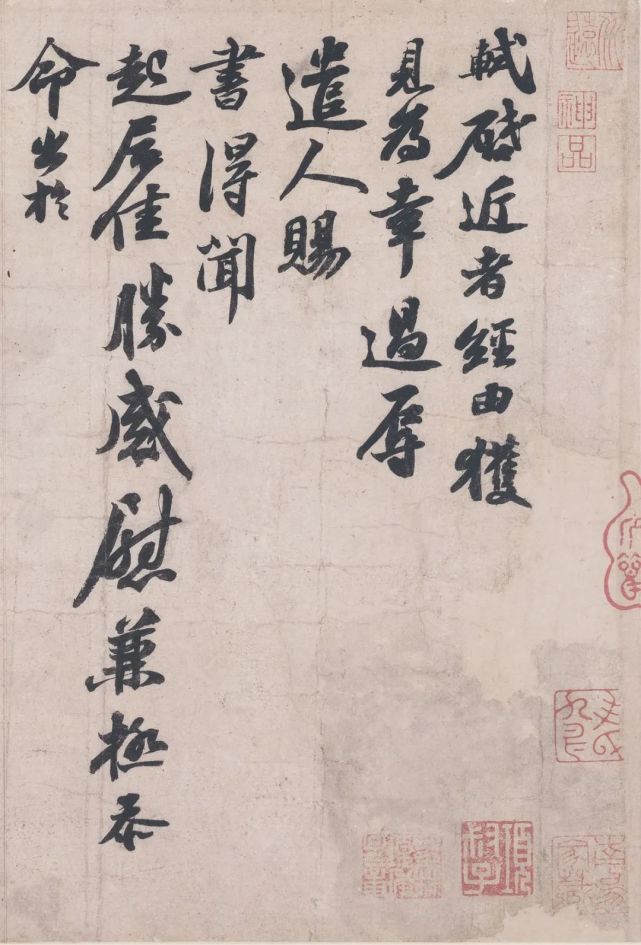 軾啓近者經由獲
見為幸過辱
遣人賜
書得聞
起居佳勝感慰兼極忝
命出於
神品